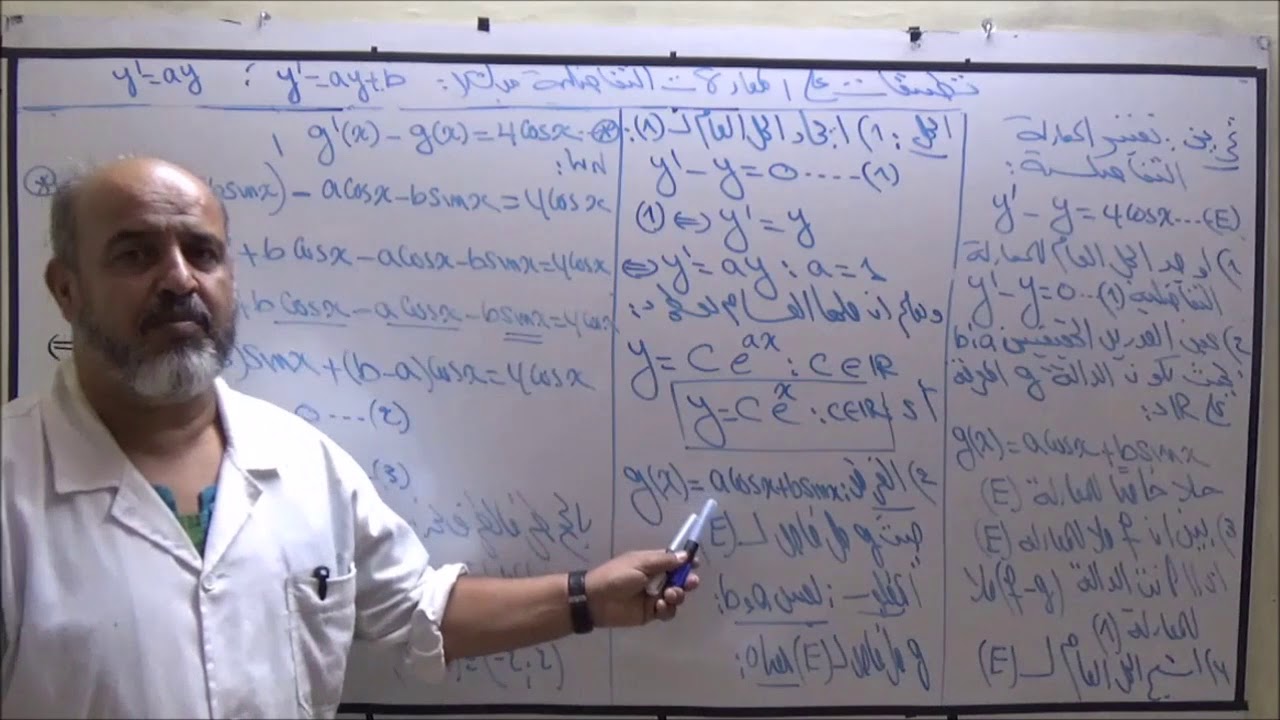 تطبيقات على المعادلات التفاضلية من الشكل: y'=ay+b ; y'=ay
تمرين: نعتبر المعادلة
التفاضلية:
y' - y = 4cosx ...(E)
1) أوجد الحل العام للمعادلة
التفاضلية (1)... y'-y=0
2) عين العددين الحقيقيين a;b
بحيث تكون الدالة g المعرفة
على IR بـ:
g(x)=acosx+bsinx
حلا خاصا للمعادلة (E)
3) بين أن f حلا للمعادلة (E)
إذا كانت الدالة (f-g) حلا
للمعادلة (1)
4) استنتج الحل العام لـ (E)
الحل: 1) إيجاد الحل العام لـ (1):
y'-y=0 ....(1)
(1) ⇔ y'=y
⇔ y'=ay : a=1
y=Ce^{ax} : C∈IR
y=Ce^x : C∈IR
2) g(x)=acosx+bsinx
حيث g حل خاص لـ (E)
: a,b
g حل خاص لـ (E) معناه:
g'(x)-g(x)=4cosx
bsinx)-acosx-bsinx=4cosx
+bcosx-acosx-bsinx=4cosx
+bcosx-acosx-bsinx=4cosx
⇔
)sinx+(b-a)cosx=4cosx
0 ---(2)
(3)
=(-2;2)